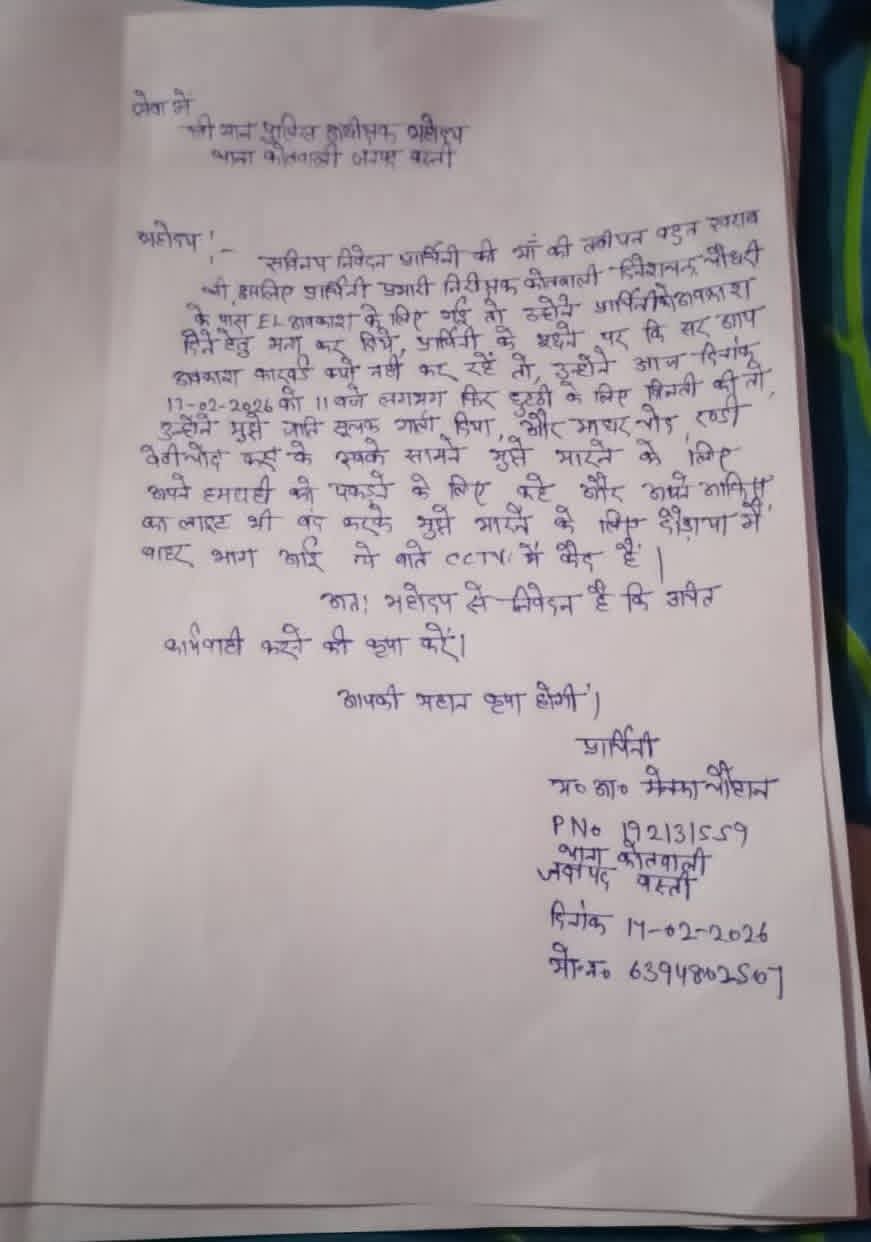 सेवा में
श्री मान पुलिस अधीक्षक महोदय
थाना कोतवाली जनपद बस्ती
महोदय!-
सविनय निवेदन प्रार्थिनी की माँ की तबीयत बहुत खराब
थी, इसलिए प्रार्थिनी प्रभारी निरीक्षक कोतवाली दिनेशचन्द्र चौधरी
के पास EL अवकाश के लिए गई तो उन्होंने प्रार्थिनी को अवकाश
देने हेतु मना कर दिये, प्रार्थिनी के पर कि सर आप
अवकाश क्यों नहीं कर रहें तो, उन्होंने आज दिनांक
17-02-2026 को 11 बजे लगभग फिर छुट्टी के लिए विनती की तो,
उन्होंने मुझे जाति सूचक गाली दिया, और मादरचोद रण्डी
बेटीचोद के सबके सामने मुझे मारने के लिए
अपने हमराही को पकड़ने के लिए कहे और अपने आफिस
का लाइट भी बंद करके मुझे मारने के लिए दौड़ाया मैं
बाहर भाग आई ये बाते CCTV में कैद हैं।
अतः महोदय से निवेदन है कि उचित
कार्यवाही करने की कृपा करें।
आपकी महान कृपा होगी।
प्रार्थिनी
म० आ० मेनका चौहान
PNo 192131559
थाना कोतवाली
जनपद बस्ती
दिनांक 17-02-2026
मो-न० 6394802507